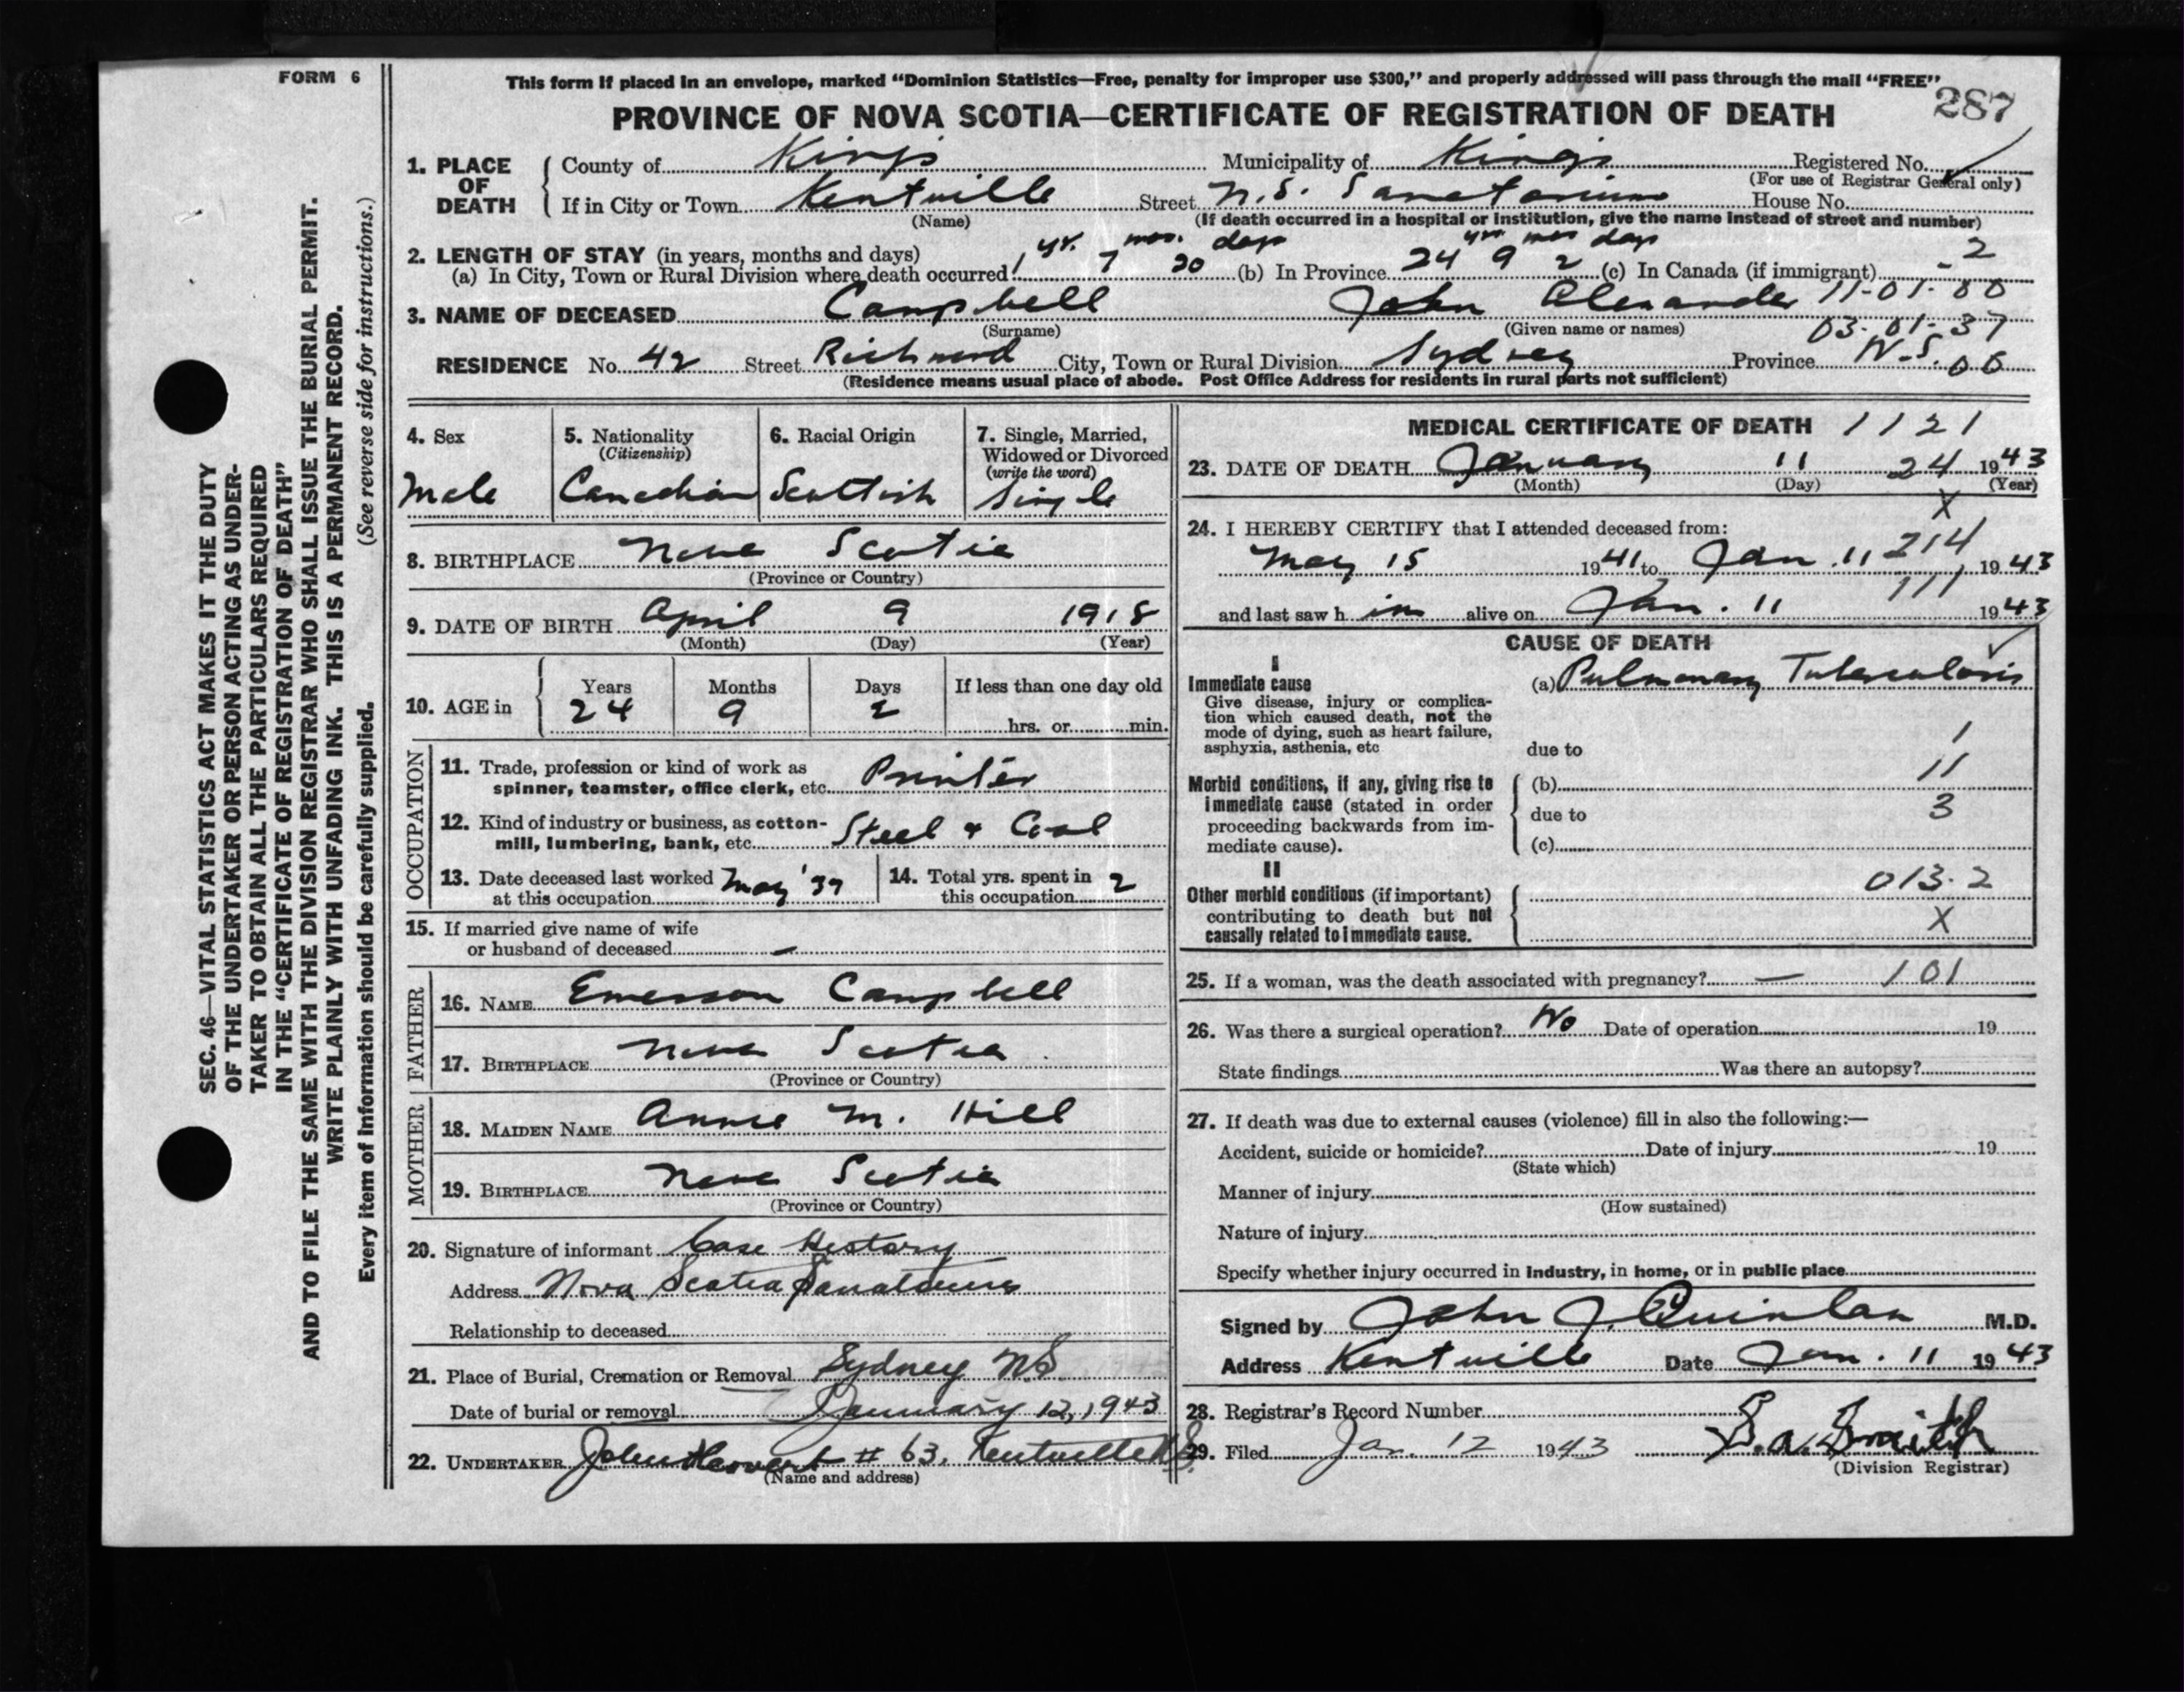 FORM 6
This form if placed in an envelope, marked "Dominion Statistics—Free, penalty for improper use $300," and properly addressed will pass through the mail "FREE"
PROVINCE OF NOVA SCOTIA—CERTIFICATE OF REGISTRATION OF DEATH 287
1. PLACE OF DEATH
County of Kings Municipality of Kings Registered No.
(For use of Registrar General only)
If in City or Town Kentville Street N.S. Sanatorium House No.
(Name) (If death occurred in a hospital or institution, give the name instead of street and number)
2. LENGTH OF STAY (in years, months and days)
(a) In City, Town or Rural Division where death occurred 1 yr. 7 mos. 20 days (b) In Province 24 yrs 9 mos 2 days (c) In Canada (if immigrant) - 2
3. NAME OF DECEASED Campbell John Alexander 11-01-00
(Surname) (Given name or names) 03-01-37
RESIDENCE No. 42 Street Richmond City, Town or Rural Division Sydney Province N.S. 06
(Residence means usual place of abode. Post Office Address for residents in rural parts not sufficient)
4. Sex
Male
5. Nationality
(Citizenship)
Canadian
6. Racial Origin
Scottish
7. Single, Married,
Widowed or Divorced
(write the word)
Single
8. BIRTHPLACE Nova Scotia
(Province or Country)
9. DATE OF BIRTH April 9 1918
(Month) (Day) (Year)
10. AGE in
Years Months Days If less than one day old
24 9 2 hrs. or min.
OCCUPATION
11. Trade, profession or kind of work as
spinner, teamster, office clerk, etc. Printer
12. Kind of industry or business, as cotton-
mill, lumbering, bank, etc. Steel & Coal
13. Date deceased last worked
at this occupation May '39
14. Total yrs. spent in
this occupation 2
15. If married give name of wife
or husband of deceased —
FATHER
16. NAME Emerson Campbell
17. BIRTHPLACE Nova Scotia
(Province or Country)
MOTHER
18. MAIDEN NAME Annie M. Hill
19. BIRTHPLACE Nova Scotia
(Province or Country)
20. Signature of informant Case History
Address Nova Scotia Sanatorium
Relationship to deceased
21. Place of Burial, Cremation or Removal Sydney N.S.
Date of burial or removal January 12, 1943
22. UNDERTAKER John # 63, Kentville N.S.
(Name and address)
MEDICAL CERTIFICATE OF DEATH 1121
23. DATE OF DEATH January 11 24 1943
(Month) (Day) (Year)
X
24. I HEREBY CERTIFY that I attended deceased from:
214
May 15 1941 to Jan. 11, 1943
111
and last saw him alive on Jan. 11 1943
CAUSE OF DEATH
I
Immediate cause
Give disease, injury or complica-
tion which caused death, not the
mode of dying, such as heart failure,
asphyxia, asthenia, etc
(a) Pulmonary Tuberculosis
due to 1
11
Morbid conditions, if any, giving rise to
immediate cause (stated in order
proceeding backwards from im-
mediate cause).
(b)
due to 3
(c)
II
Other morbid conditions (if important)
contributing to death but not
causally related to immediate cause.
013.2
X
25. If a woman, was the death associated with pregnancy? — 101
26. Was there a surgical operation? No Date of operation 19
State findings Was there an autopsy?
27. If death was due to external causes (violence) fill in also the following:—
Accident, suicide or homicide? Date of injury 19
(State which)
Manner of injury
(How sustained)
Nature of injury
Specify whether injury occurred in industry, in home, or in public place
Signed by John J. Quinlan M.D.
Address Kentville Date Jan. 11 1943
28. Registrar's Record Number
29. Filed Jan. 12 1943 Smith
(Division Registrar)
SEC. 46—VITAL STATISTICS ACT MAKES IT THE DUTY
OF THE UNDERTAKER OR PERSON ACTING AS UNDER-
TAKER TO OBTAIN ALL THE PARTICULARS REQUIRED
IN THE "CERTIFICATE OF REGISTRATION OF DEATH"
AND TO FILE THE SAME WITH THE DIVISION REGISTRAR WHO SHALL ISSUE THE BURIAL PERMIT.
WRITE PLAINLY WITH UNFADING INK. THIS IS A PERMANENT RECORD.
Every item of information should be carefully supplied. (See reverse side for instructions.)